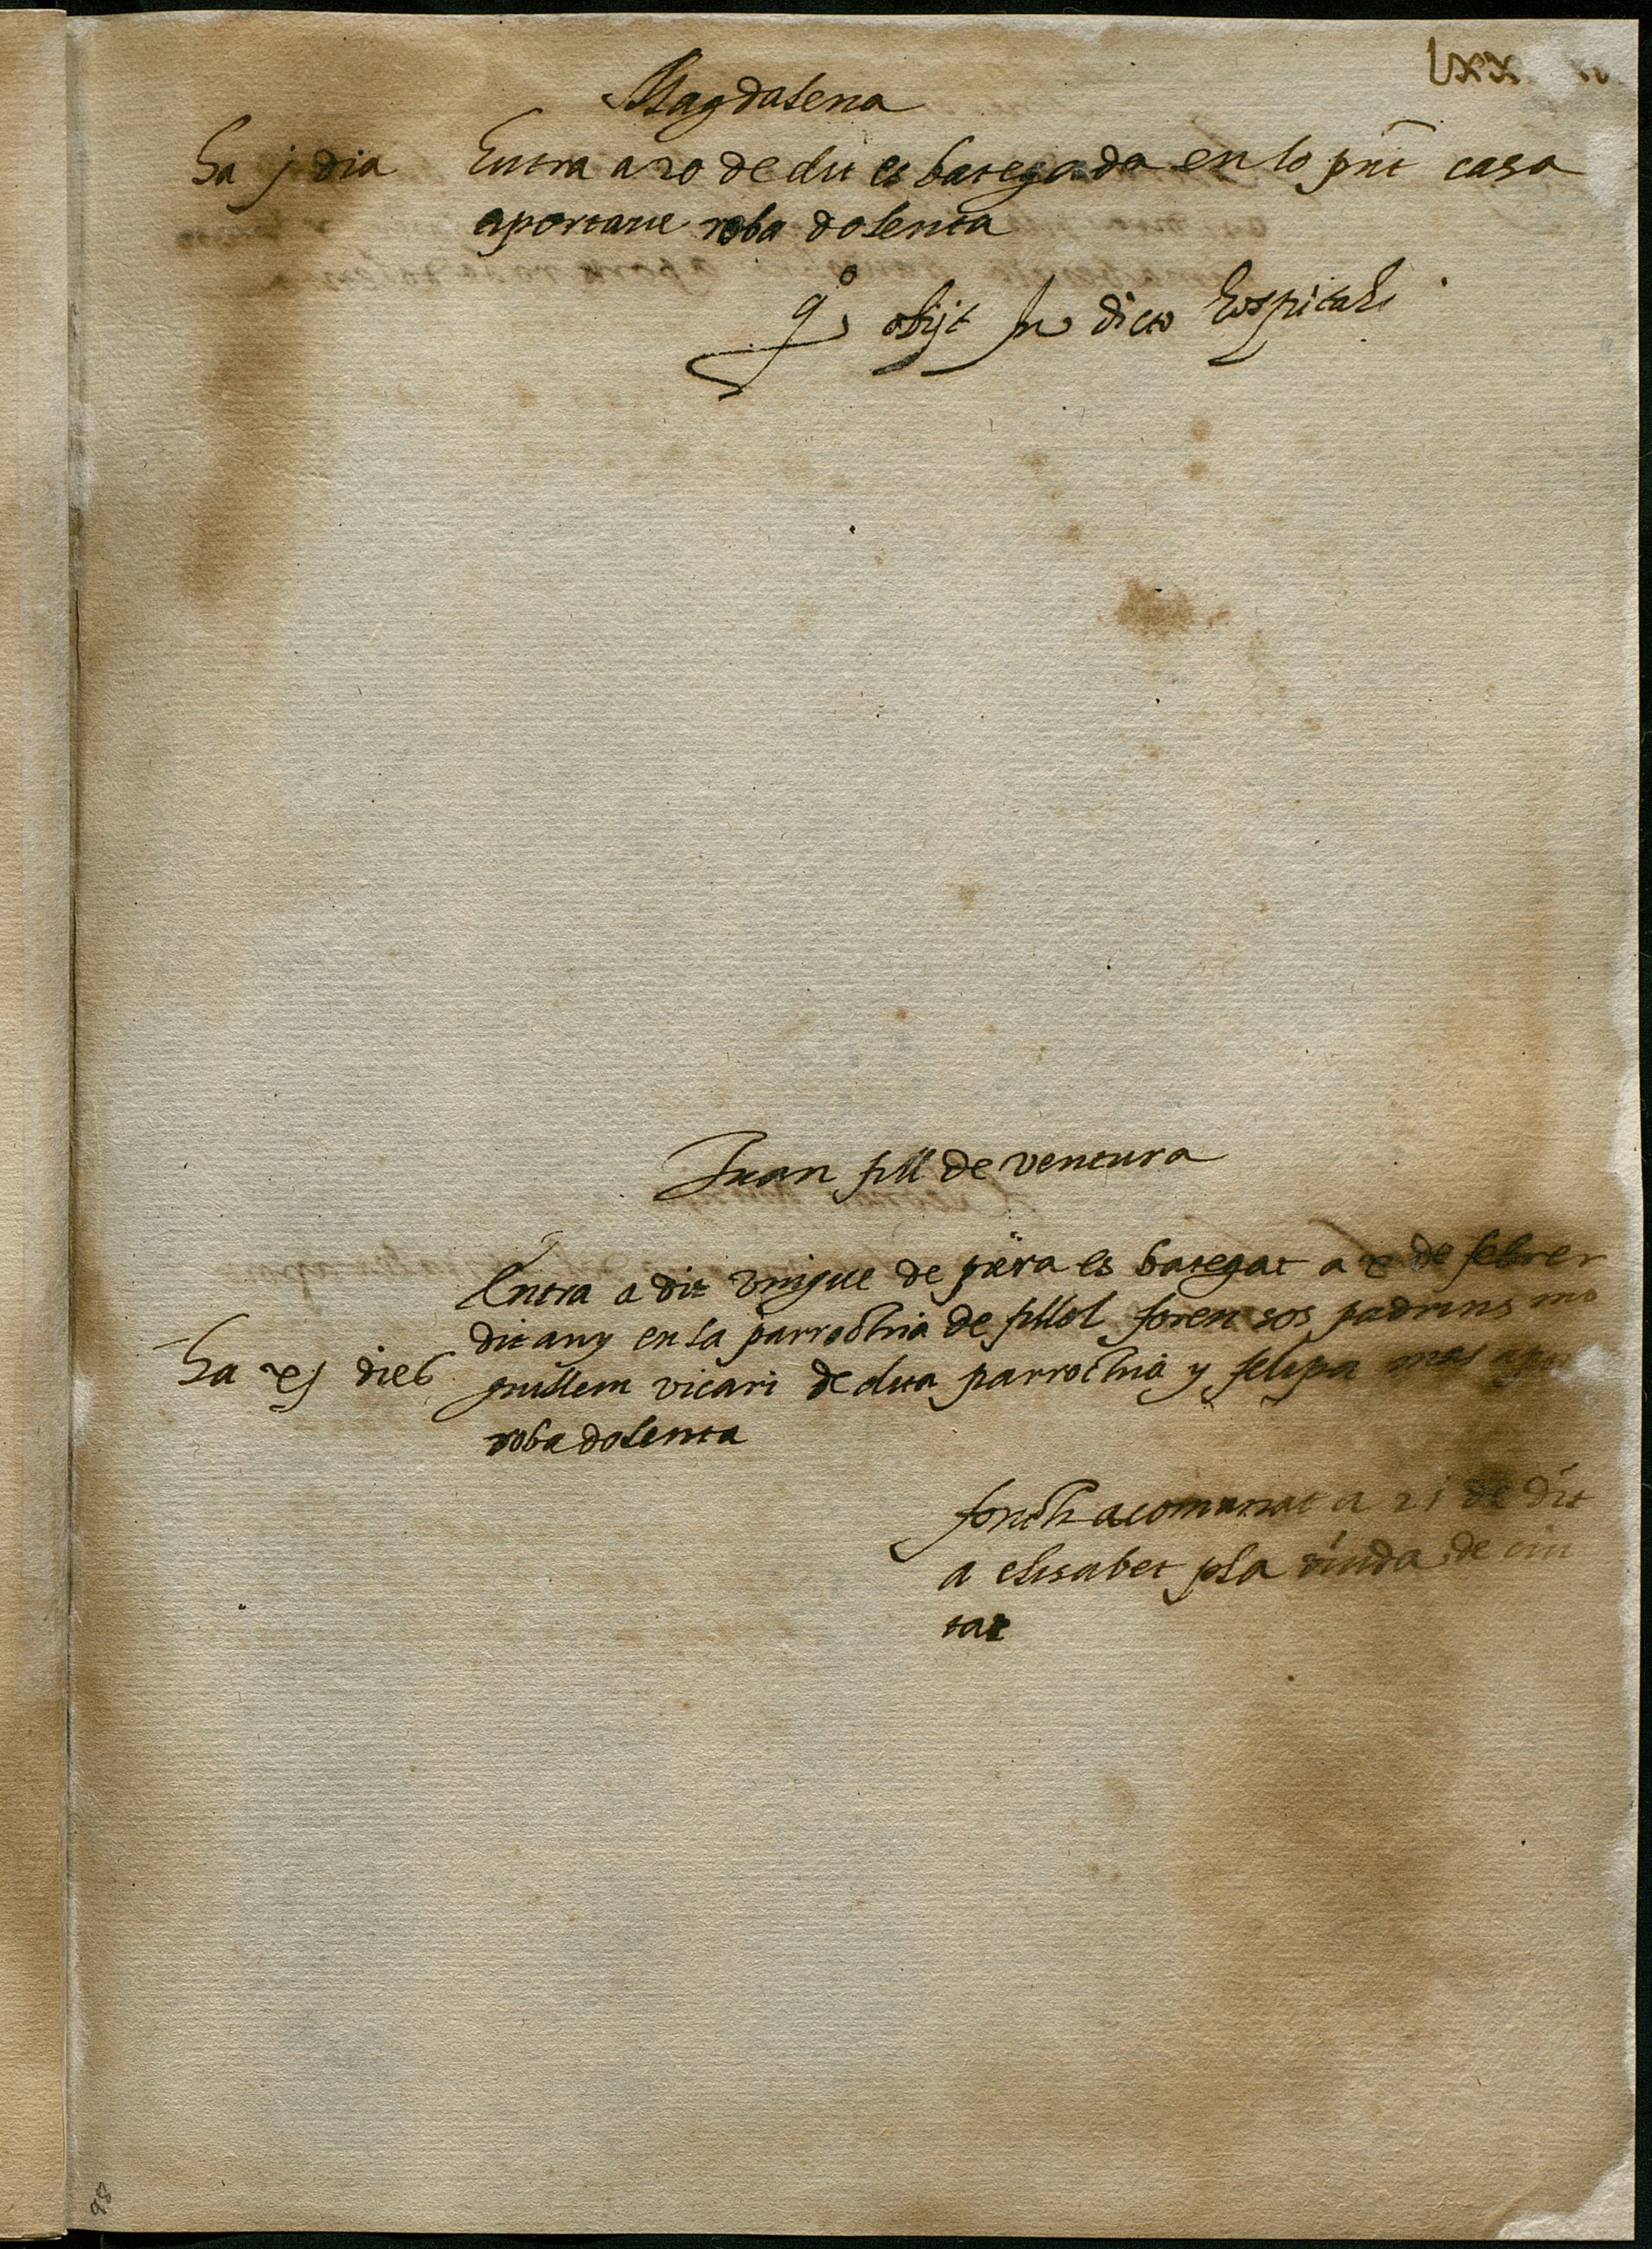 Lxx
Magdalena
ha j dia
Entra a 20 de dit es bategada en lo pnt casa
aportave roba dolenta
q° obijt In dicto hospitali
Juan fill de ventura
Entra a dit vingue de es bategat a de febrer
dit any en la parrochia de fillol foren sos padrins mo
ha xj dies
guillem vicari de dita parrochia y felipa mas
roba dolenta
fonch acomanat a 21 de dit
a elisabet pla viuda de ciu
tat
98